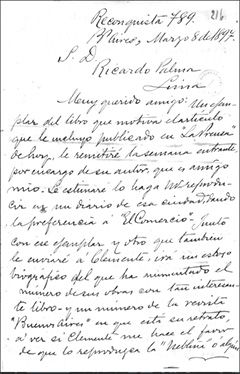 216
Reconquista 789.
B. Aires, Marzo 8 de 1897.
S. D.
Ricardo Palma
Lima
Muy querido amigo: Un ejem-
plar del libro que motiva el artículo
que le incluyo publicado en "La Prensa"
de hoy, le remitiré la semana entrante,
por encargo de su autor, que es amigo
mio. Le estimaré lo haga reprodu-
cir en un diario de esa ciudad, dando
la preferencia a "El Comercio". Junto
con ese ejemplar y otro que tambien
le enviaré á Clemente, irá un estoyo
biográfico del que ha aumentado el
número de sus obras con tan interesan-
te libro - y un número de la revista
"Buenos Aires" en que está su retrato,
á ver si Clemente me hace el favor
de que lo reproduzca la "Neblina" ó algun